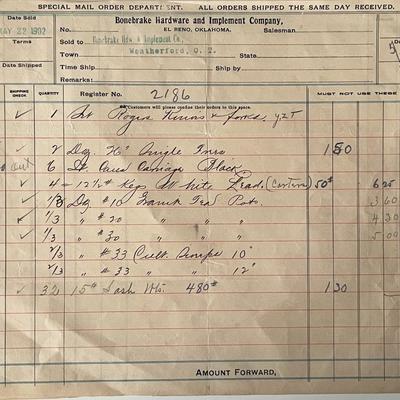 SPECIAL MAIL ORDER DEPARTMENT. ALL ORDERS SHIPPED THE SAME DAY RECEIVED.
Date Sold
Bonebrake Hardware and Implement Company,
MAY 22 1902
No.
EL RENO, OKLAHOMA.
Salesman
Terms
Sold to Bonebrake Hdw. & Implement Co.,
Town Weatherford, O. T.
State
Time Ship
Ship by
Remarks:
SHIPPING CHECK
QUANTITY
Register No. 2186
MUST NOT USE THESE
Customers will please confine their orders to this space.
1 Set Rogers Knives & forks
2 Dz 26" Single Trees 1 50
out 6 Carriage Black
4 12½# Kegs White Lead (Carters) 50# 6 25
1/3 Dz #10 Tea Pots 3 60
1/3 " #20 " " 4 20
1/3 " #30 " " 5 00
2/3 " #33 Cult. Sweeps 10"
2/3 " #33 " " 12"
32 15# Sash Wts. 480# 1 30
AMOUNT FORWARD,